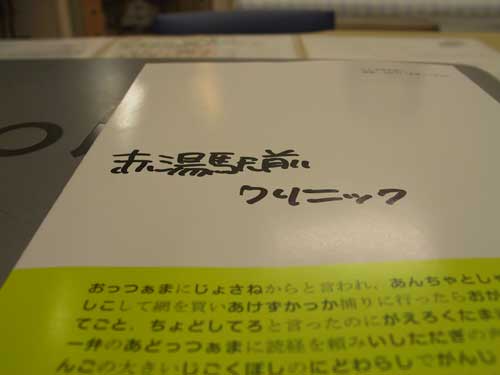 赤湯駅前
クリニック
おっつぁまにじょさねからと言われ、あんちゃとしゃ
しこして網を買いあけずかっか捕りに行ったらおか
てごと、ちょどしてろと言ったのにがえろくたま
一弁のあとっつぁまに読経を頼みいしただぎの
んごの大きいじごくぼしのにとわらしでがんじ